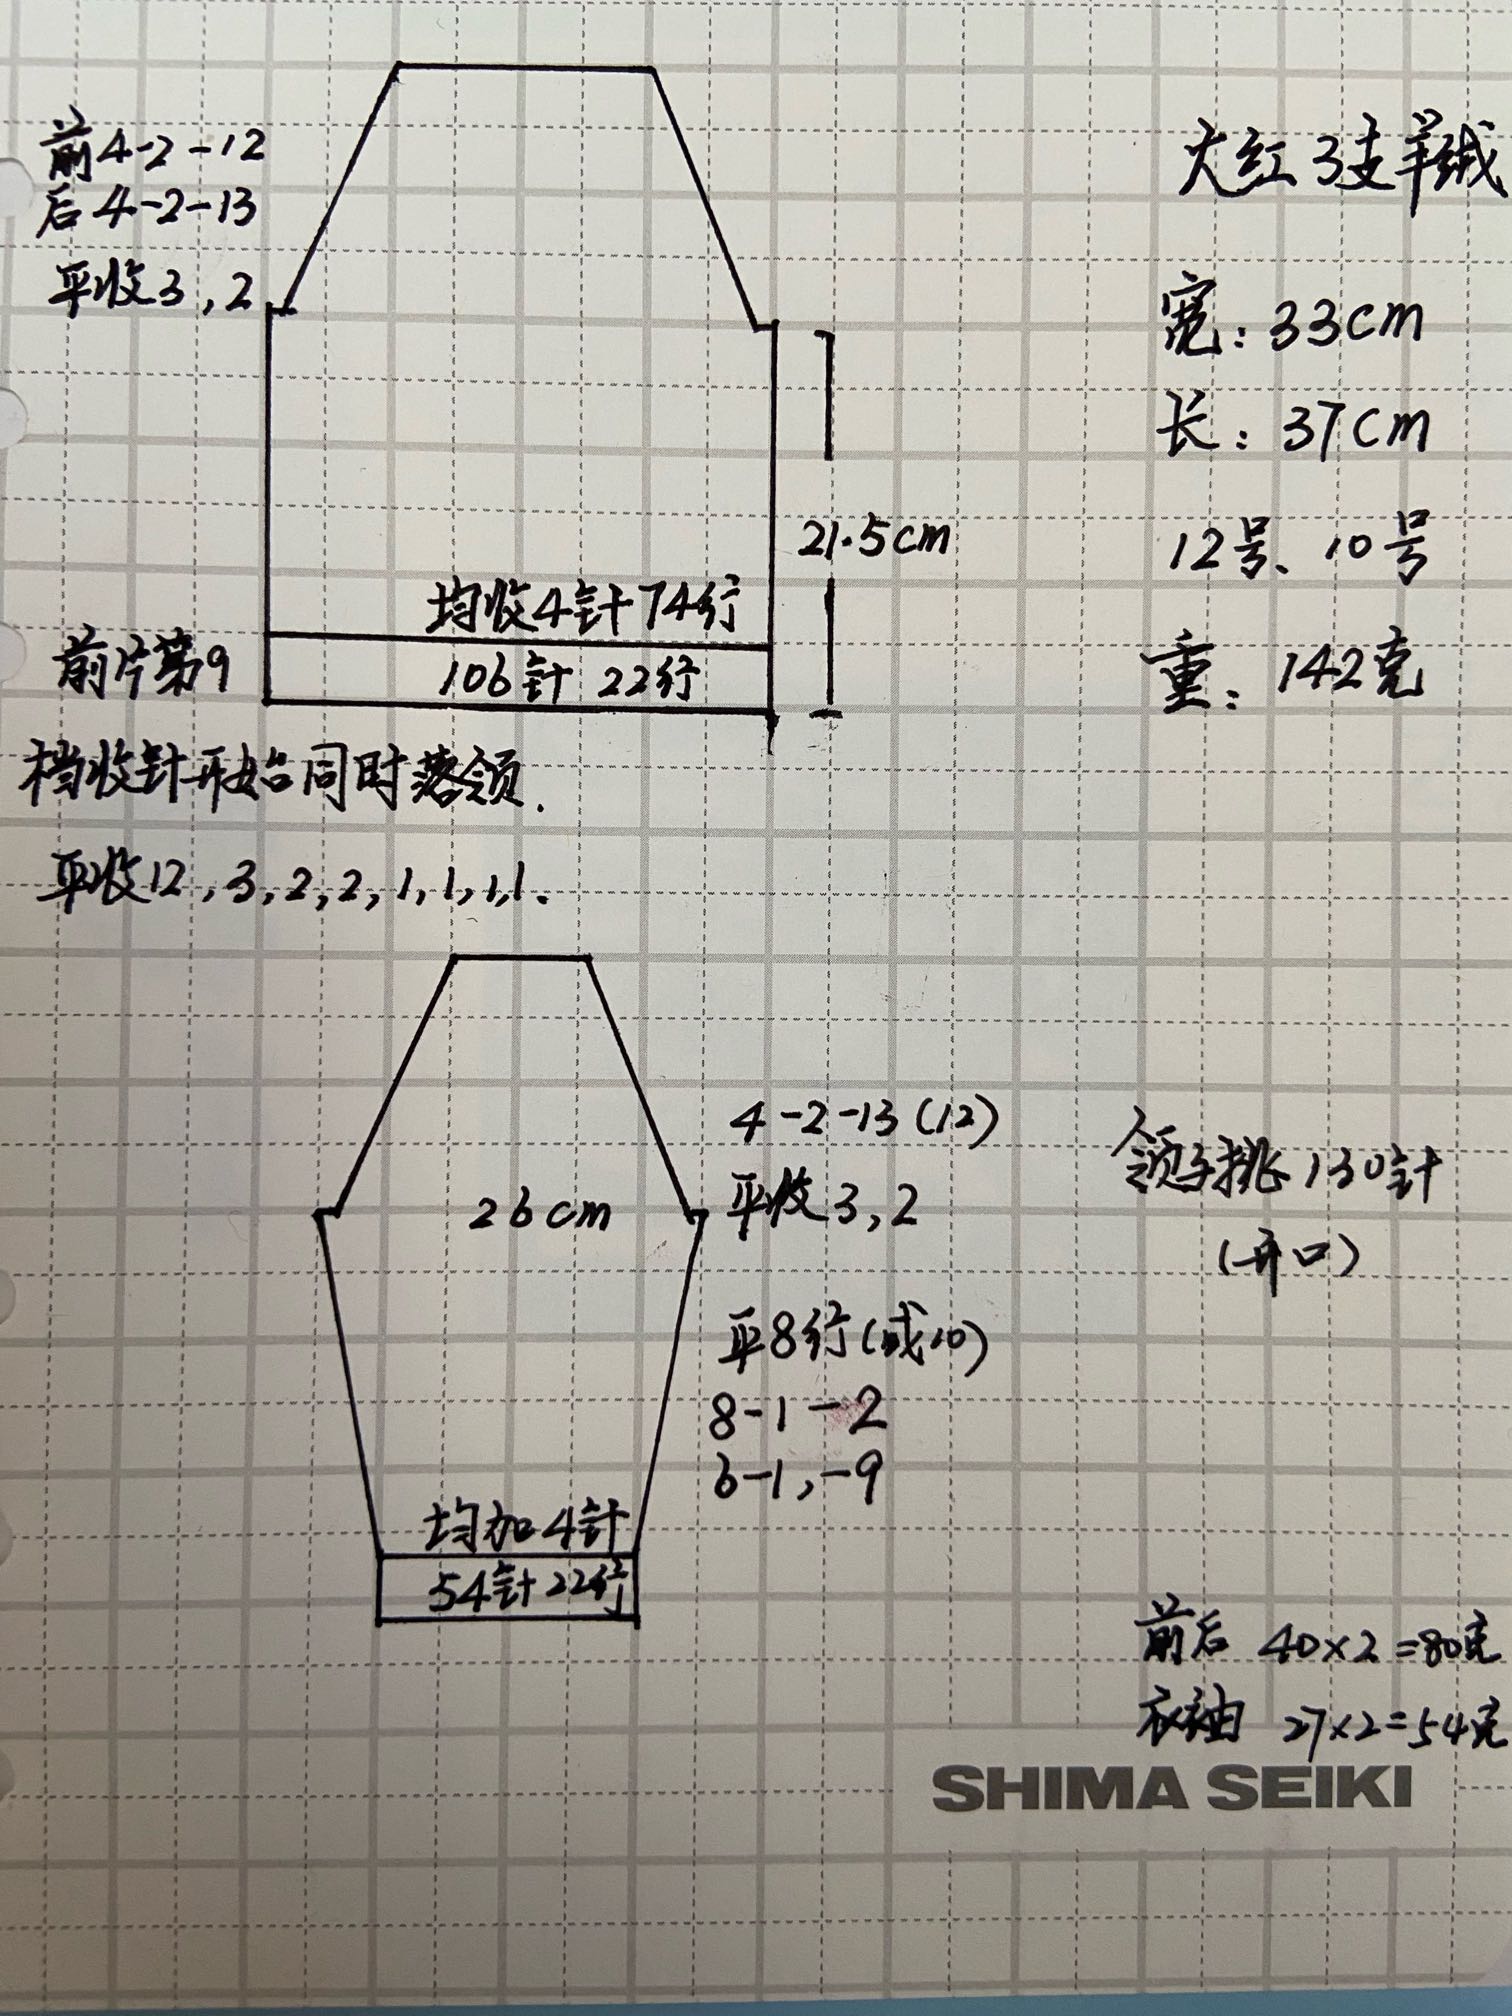 前4-2-12
后4-2-13
平收3,2
大红3支羊绒
宽:33cm
长:37cm
12号、10号
重:142克
21.5cm
均收4针74行
106针 22行
前片第9
档收针开始同时落领.
平收12,3,2,2,1,1,1,1.
26cm
4-2-13(12)
平收3,2
平8行(或10)
8-1-2
6-1,-9
均加4针
54针22行
领子挑130针
(开口)
前后 40×2=80克
衣袖 27×2=54克
SHIMA SEIKI